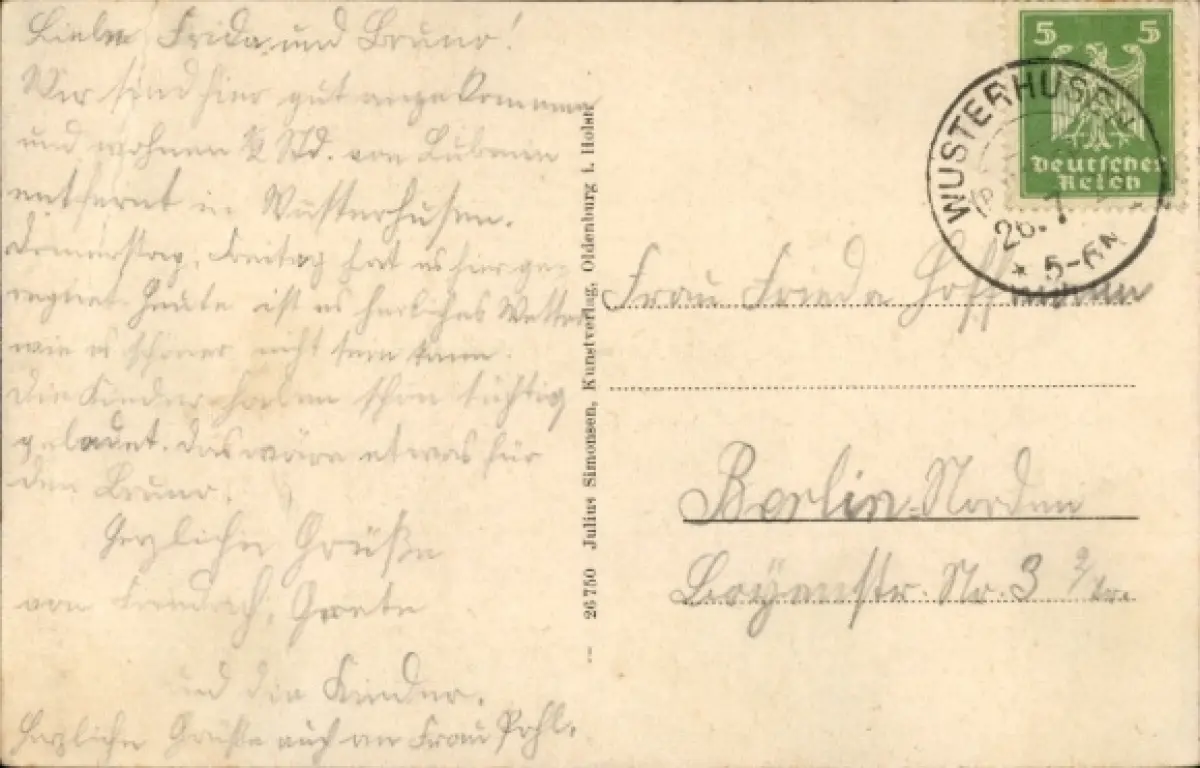 Liebe Frida und Bruno!
Wir sind hier gut angekommen
und wohnen ½ Std. von Lubmin
entfernt in Wusterhusen.
Donnerstag, Freitag hat es hier ge-
regnet. Heute ist es herliches Wetter
wie es schöner nicht sein kann.
Die Kinder haben schon tüchtig
gebadet. Das wäre etwas für
den Bruno.
Herzliche Grüße
von Grete
und die Kinder.
Herzliche Grüße auch an Frau Pohl.
26750 Julius Simonsen, Kunstverlag, Oldenburg i. Holst.
5 5
Deutsches
Reich
WUSTERHUSEN
26.7
* 5-6N
Frau Frieda Hoffmann
Berlin-Norden
Boyenstr. Nr. 3 2/Tr.